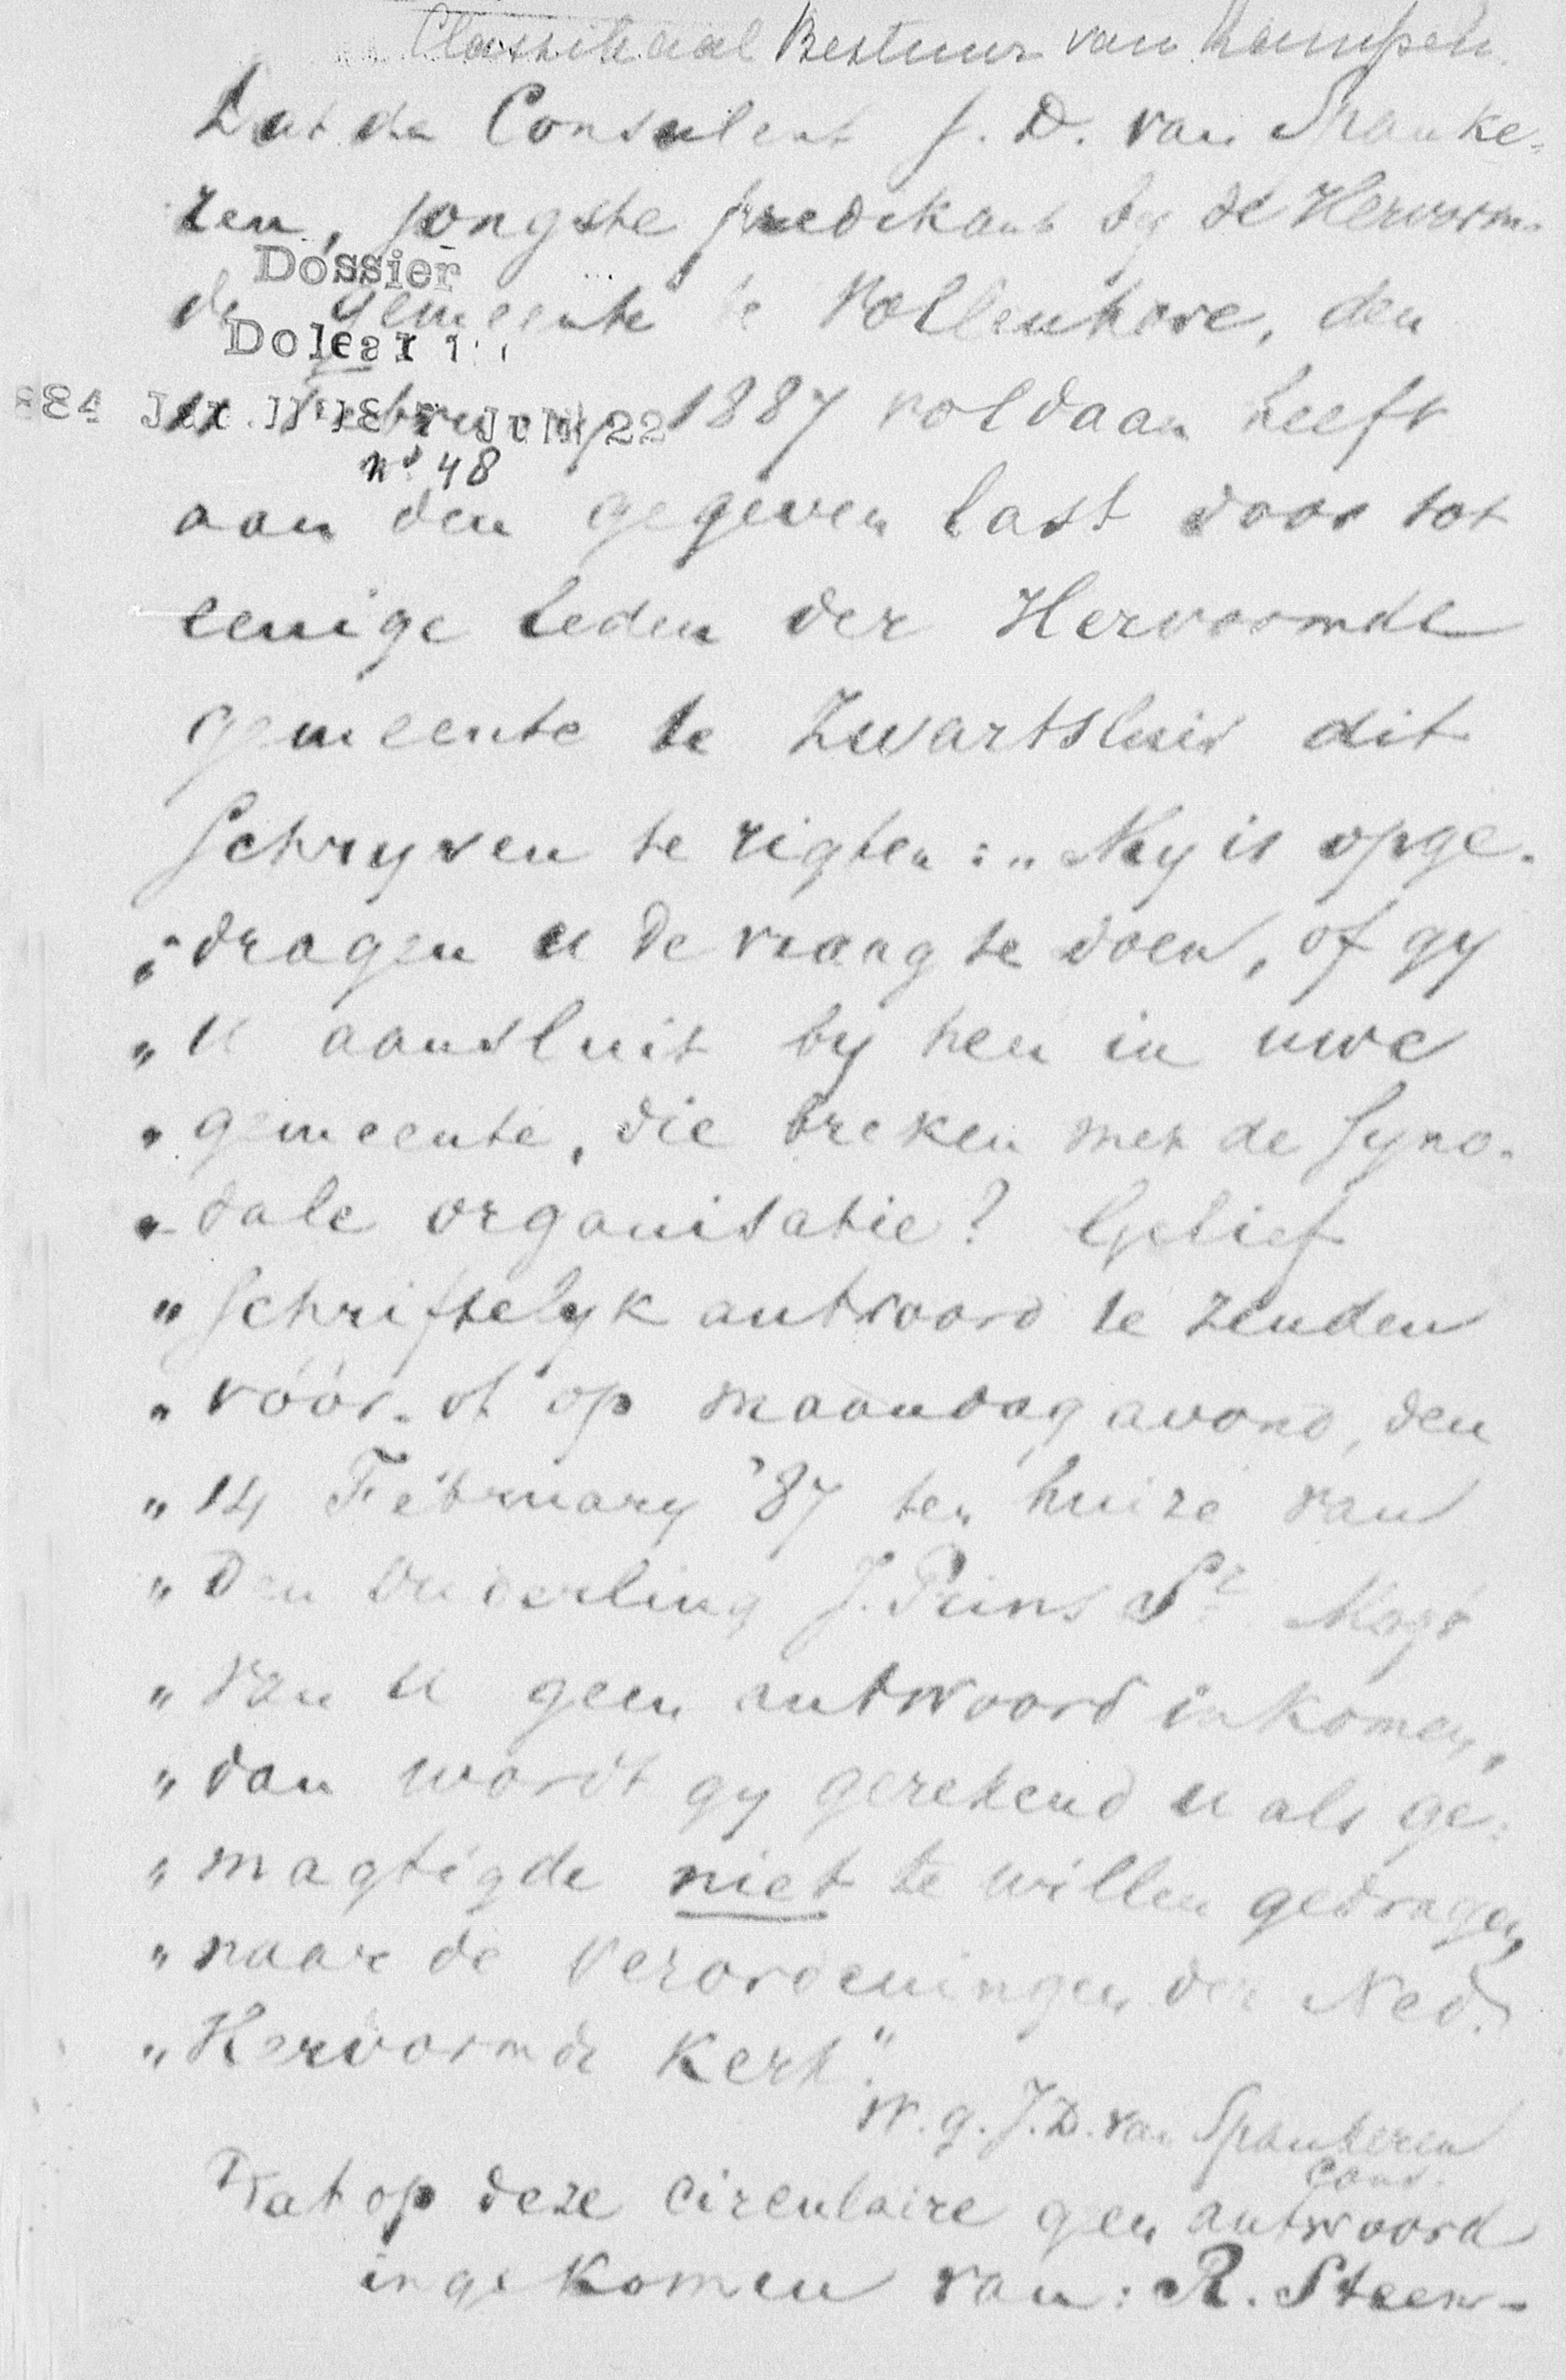 Classikaal Bestuur van Kampen.
Dat de Consulent J. D. van Spanke-
ren, jongste predikant by de Hervorm-
Dossier
de gemeente te Vollenhove, den
Doleari
11 February 1887 voldaan heeft
no 48
aan den gegeven last door tot
eenige leden der Hervormde
gemeente te Zwartsluis dit
schryven te rigten: „My is opge-
„dragen u de vraag te doen, of gy
„u aansluit by hen in uwe
„gemeente, die breken met de Syno-
„dale organisatie? Gelief
„schriftelyk antwoord te zenden
„vóór- of op maandag avond, den
„14 February '87 ten huize van
„Den Ouderling J. Prins Sr. Mogt
„van u geen antwoord inkomen,
„dan wordt gy gerekend u als ge-
„magtigde niet te willen gedragen,
„naar de verordeningen der Ned.
„Hervormde Kerk."
w. g. J. D. van Spankeren
cons.
Dat op deze circulaire geen antwoord
ingekomen van: R. Steen-